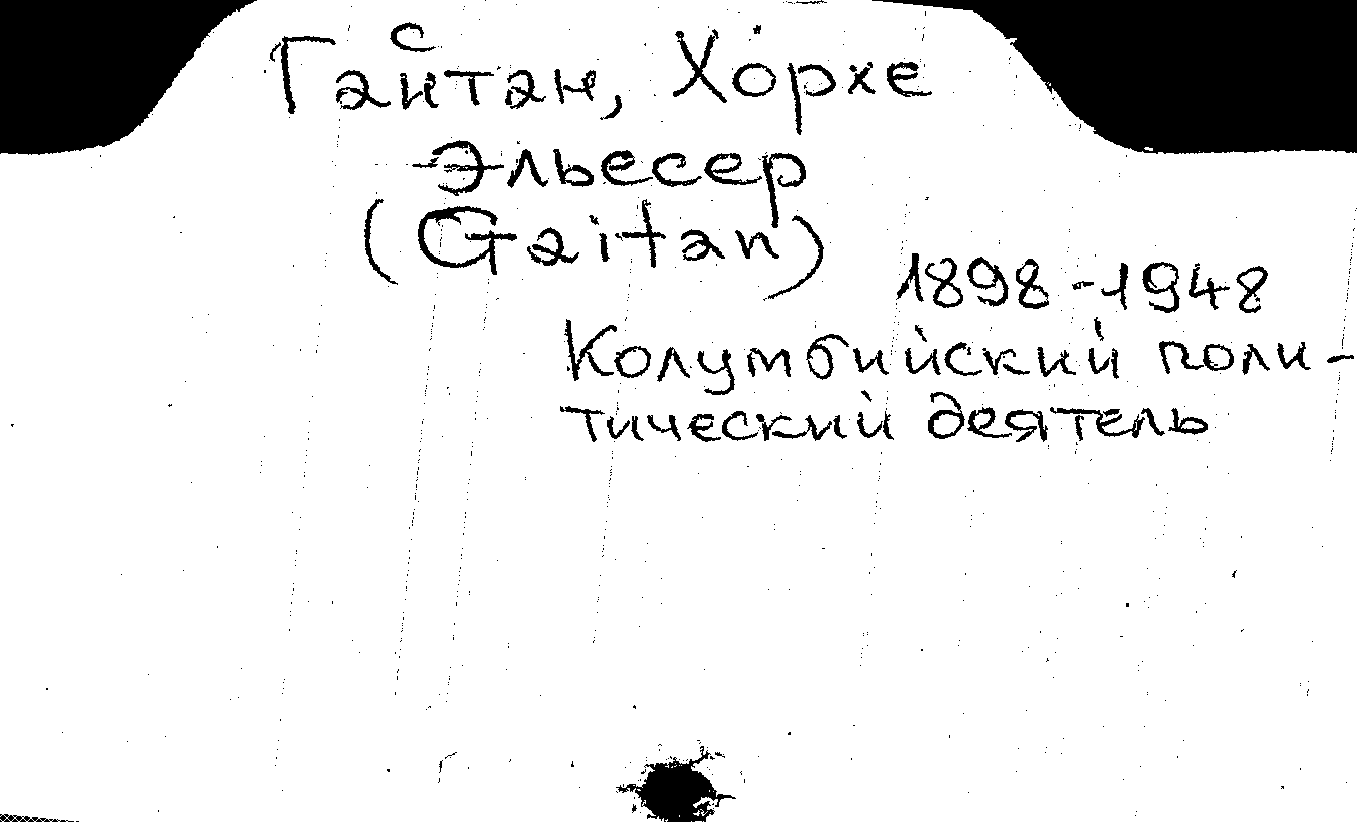 Гайтан, Хорхе
Эльесер
(Gaitan)
1898-1948
Колумбийский поли-
тический деятель